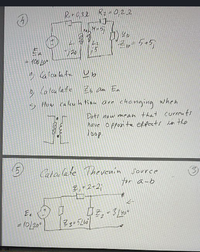 4
R₁=0,2Ω R₂=0,2Ω
M=5j
Z_b=5+5j
E_A
=10∠0°
L₁
L₂
U_b
a) Calculate U_b
b) Calculate Z_b an E_A
c) How calculation are changing when
Dots now mean that currents
have opposite effects in the
loop.
5 Calculate Thevenin source 3
for a-b
Z₁=2+2j
E_A
=10∠0°